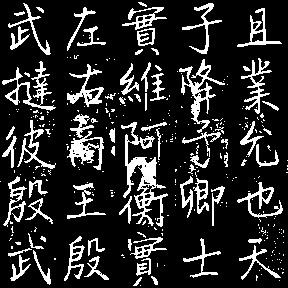 且業允也天
子降予卿士
實維阿衡實
左右商王殷
武撻彼殷武